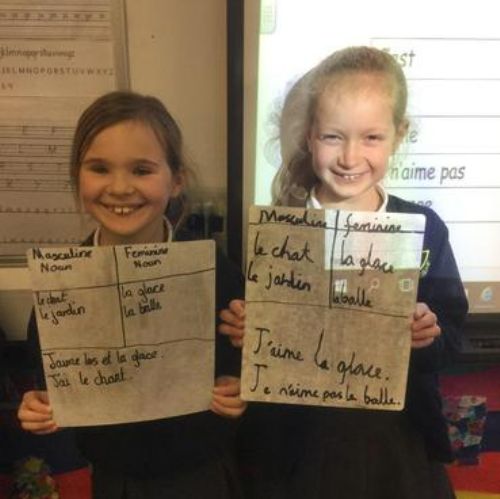 JKLMNOPQRSTUVWXYZ
n'aime pas
Masculine Noun
Feminine Noun
le chat
le jardin
la glace
la balle
J'aime las et la glace.
J'ai le chart.
Masculine
feminine
le chat
le jardin
la glace
la balle
J'aime la glace.
Je n'aime pas la balle.